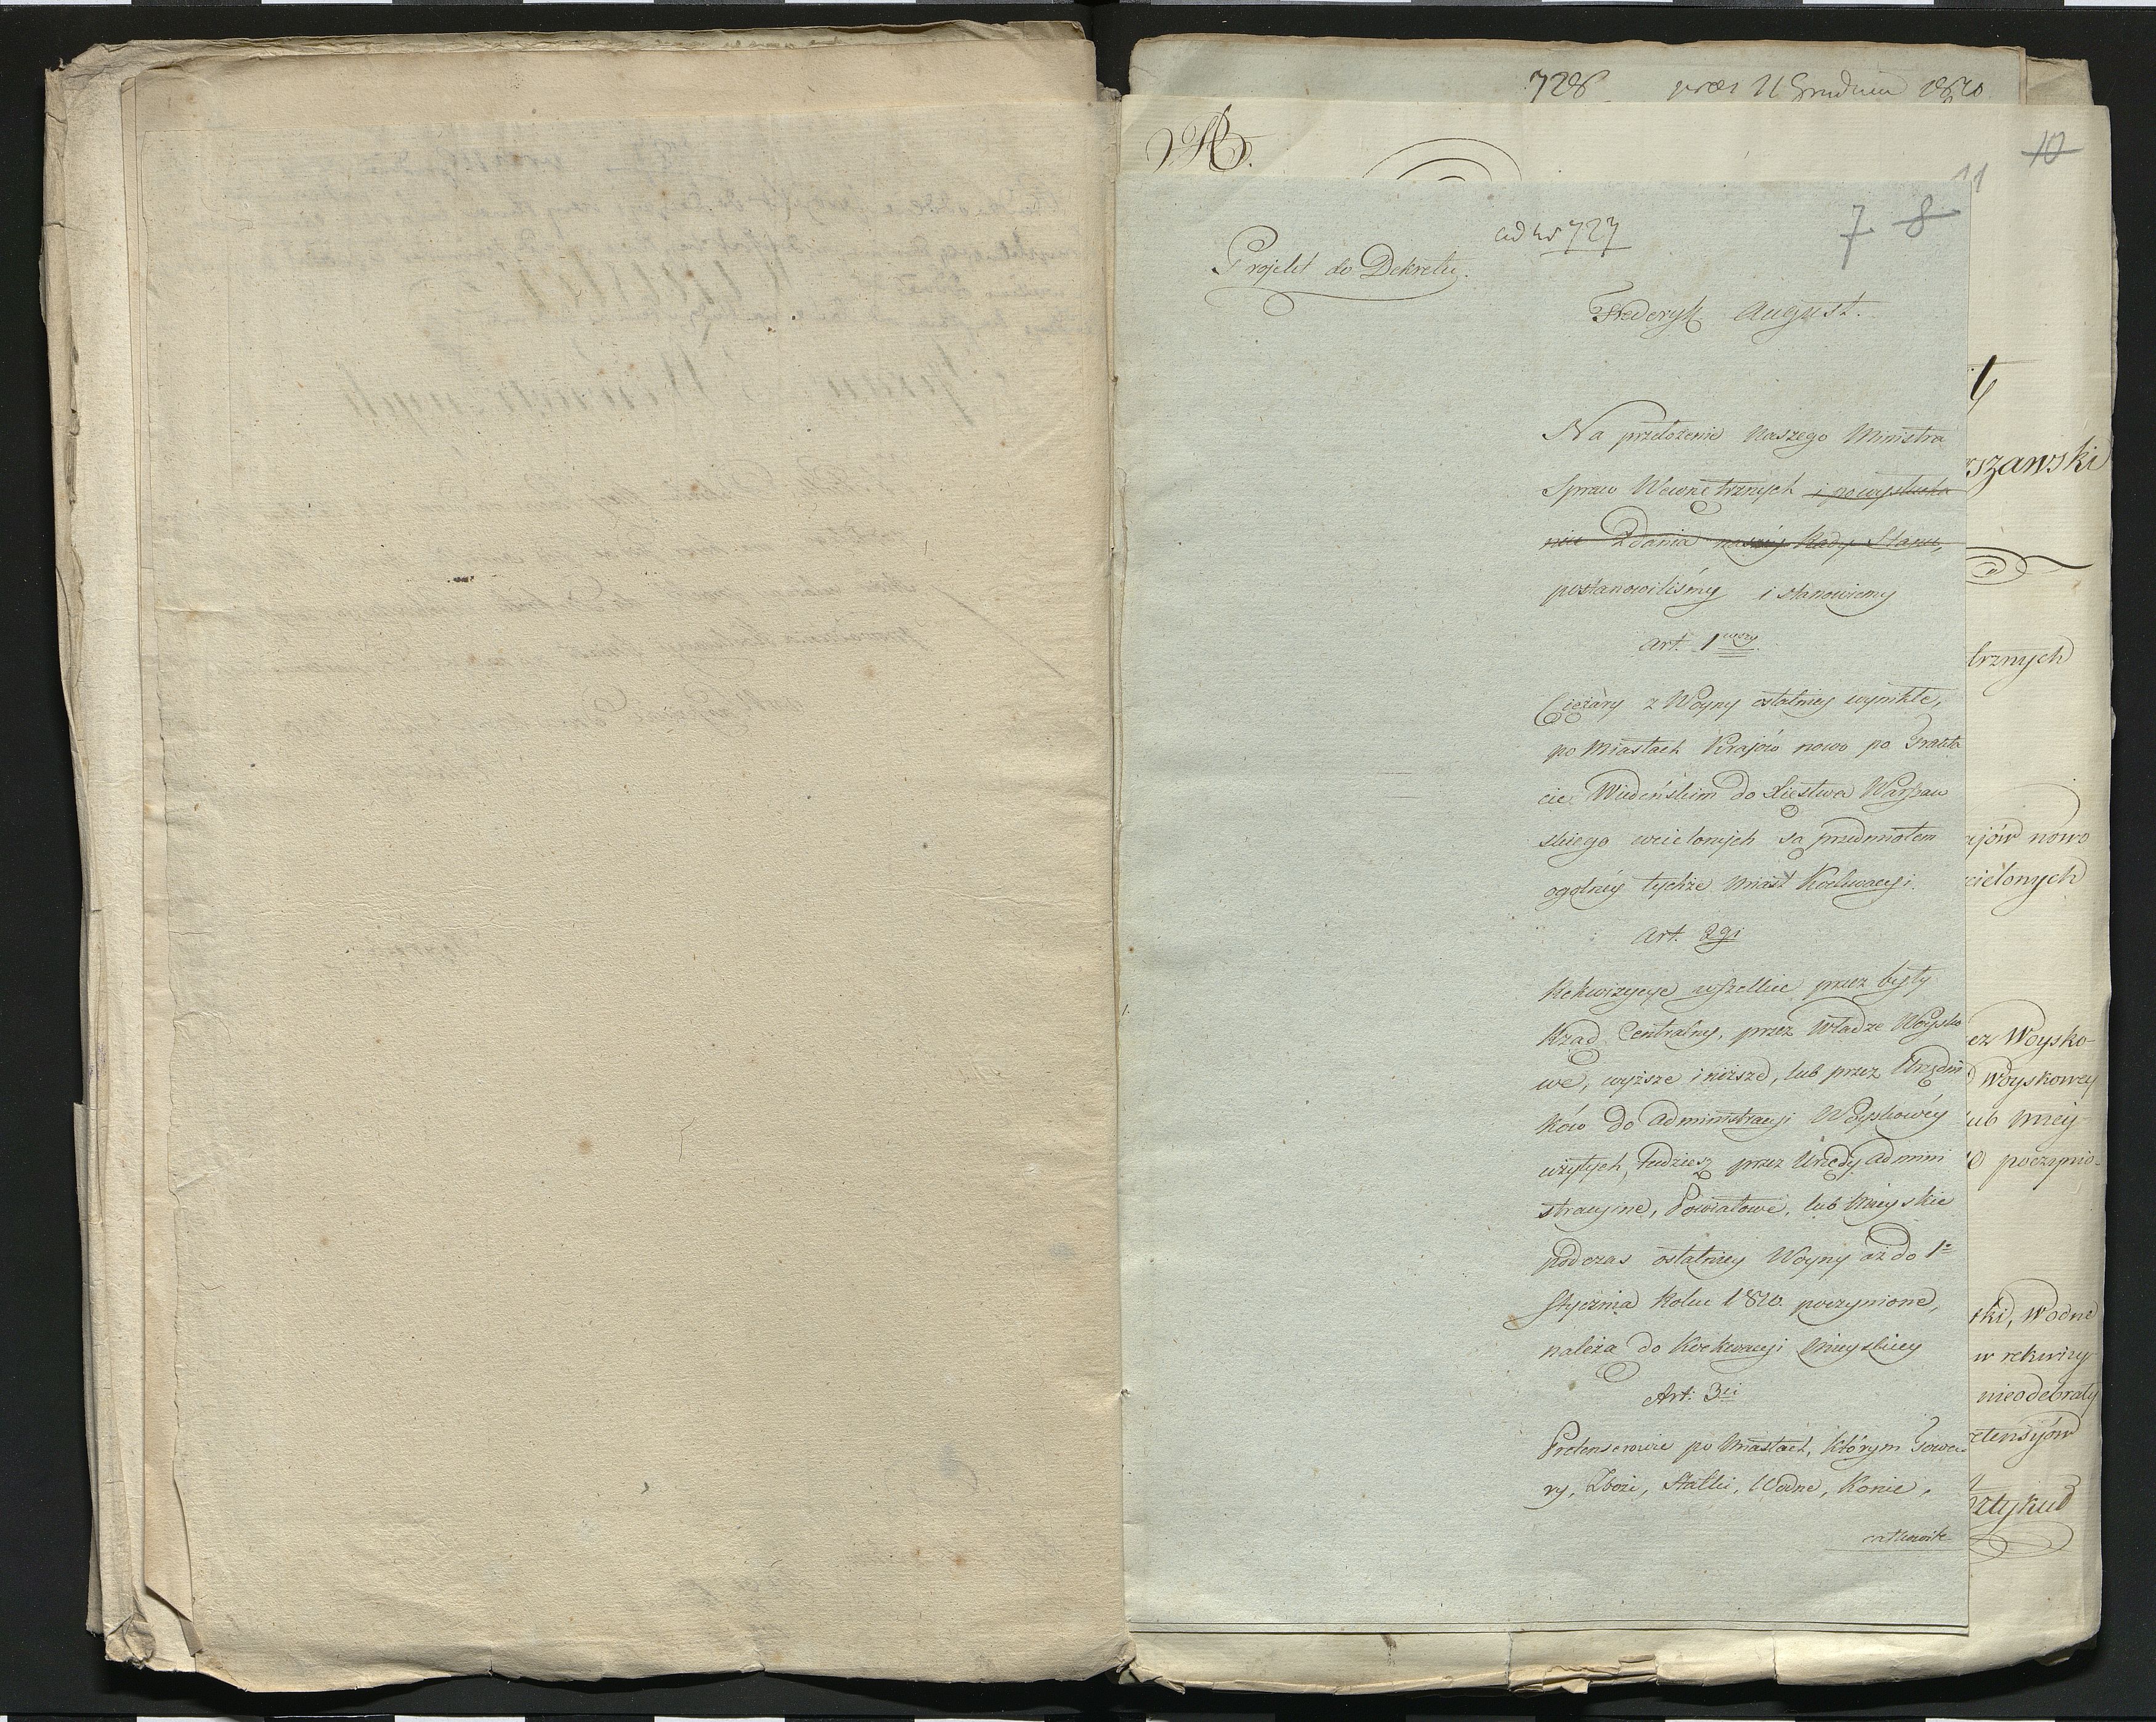 728 pres 21 Grudnia 1810
10
11
7 8
ad No 727
Projekt do Dekretu.
Frederyk August.
Na przełożenie Naszego Ministra
Spraw Wewnętrznych i po wysłucha
niu Zdania naszéy Rady Stanu,
postanowiliśmy i stanowiemy
Art. 1wszy
Ciężary z Woyny ostatniey wynikłe,
po Miastach Krajów nowo po Trakta
cie Wiedeńskim do Xięstwa Warszaw
skiego wcielonych są przedmiotem
ogolnéy tychże Miast Koekwacyi.
Art. 2gi
Rekwizycye wszelkie przez były
Rząd Centralny, przez Władze Woysko
we, wyższe i niższe, lub przez Urzędni
ków do Administracyi Woyskowéy
użytych, tudzież przez Urzędy Admini
stracyine, Powiatowe, lub Mieyskie
podczas ostatniey Woyny aż do 1o
Stycznia Roku 1810. poczynione,
należą do Koekwacyi Mieyskiey
Art. 3ci
Pretensorowie po Miastach, którym Towa
ry, Zboże, Statki, Wodne, Konie,
szawski
trznych
ajów nowo
cielonych
ez Woysko-
Woyskowey
lub miey
poczynio-
tki, Wodne
w rekwizy
nieodebrały
etensyów
rtykuł